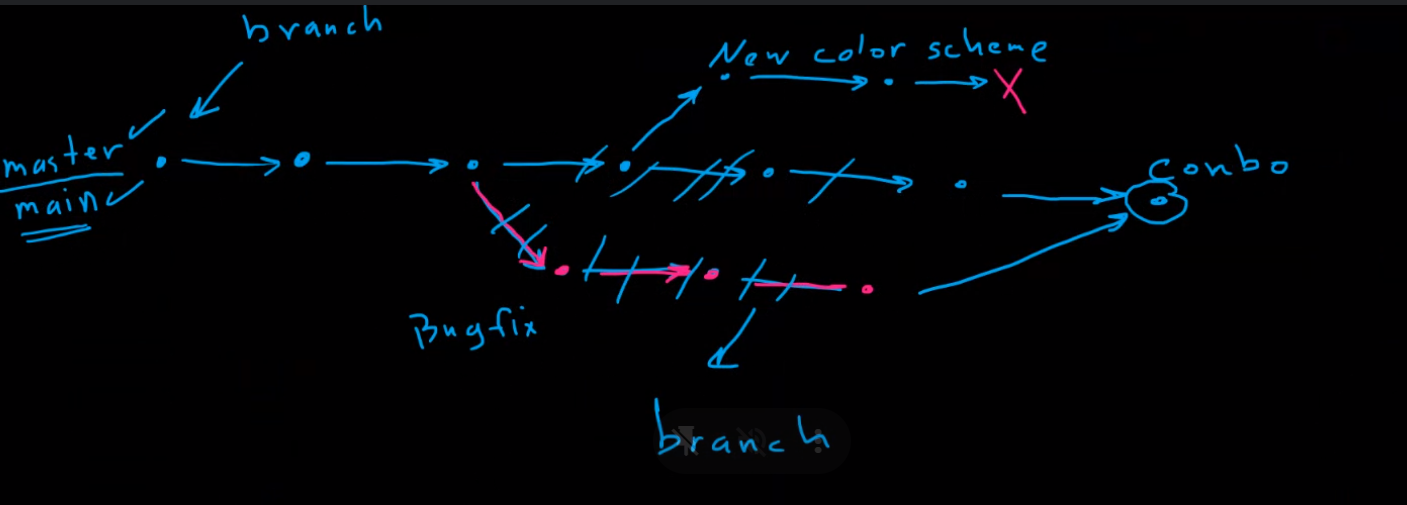 branch
New color scheme
master
main
Combo
Bugfix
branch